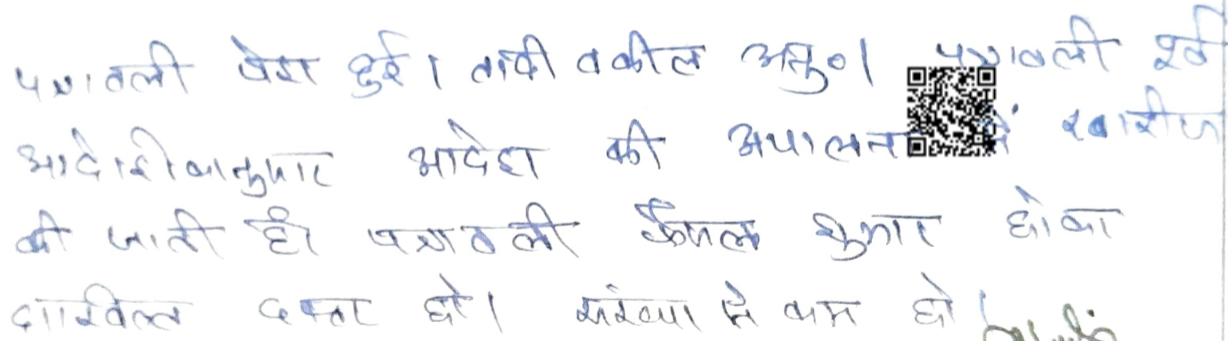 पत्रावली पेश हुई। वादी वकील अनु०। पत्रावली पूर्व
आदेशिकानुसार आदेश की अपालना में खारीज
की जाती है। पत्रावली फैसल शुमार होकर
दाखिल दफ्तर हो। संख्या से कम हो।